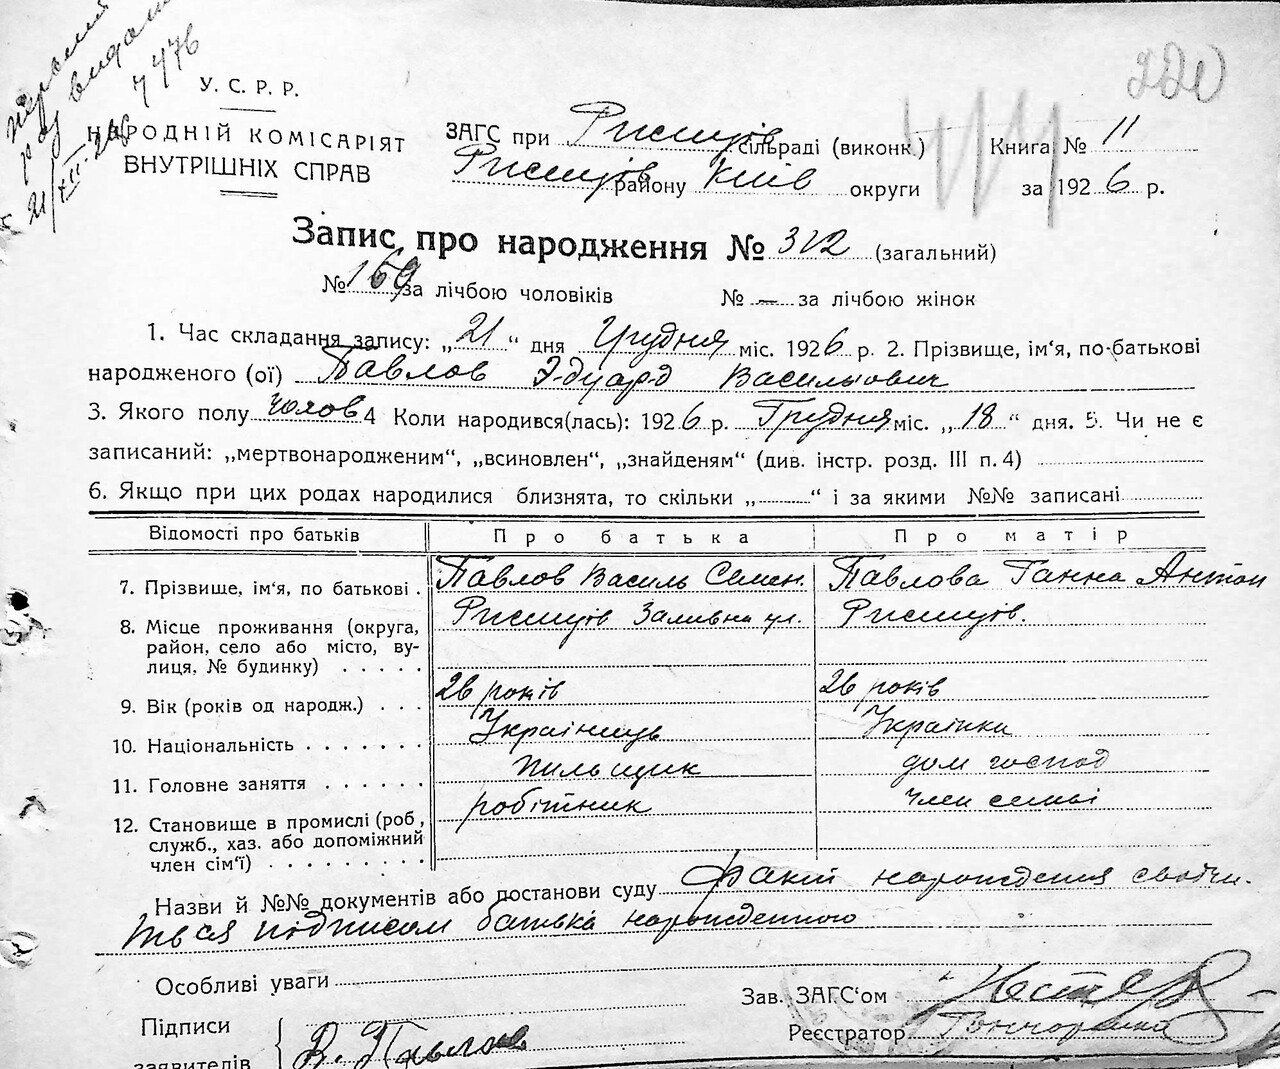 220
У. С. Р. Р.
НАРОДНІЙ КОМІСАРІЯТ
ВНУТРІШНІХ СПРАВ
ЗАГС при Ржищів сільраді (виконк.) Книга № 11
Ржищів району Київ округи за 1926 р.
Запис про народження № 312 (загальний)
№ 169 за лічбою чоловіків № — за лічбою жінок
1. Час складання запису: „21“ дня Грудня міс. 1926 р. 2. Прізвище, ім‘я, по-батькові
народженого (ої) Павлов Эдуард Васильович
3. Якого полу чолов 4 Коли народився(лась): 1926 р. Грудня міс. „18“ дня. 5. Чи не є
записаний: „мертвонародженим“, „всиновлен“, „знайденям“ (див. інстр. розд. III п. 4)
6. Якщо при цих родах народилися близнята, то скільки „ “ і за якими №№ записані
Відомості про батьків Про батька Про матір
7. Прізвище, ім‘я, по батькові . Павлов Василь Семен. Павлова Ганна Антон
8. Місце проживання (округа, Ржищів Заливна ул. Ржищів.
район, село або місто, ву-
лиця, № будинку)
9. Вік (років од народж.) 26 років 26 років
10. Національність Українець Українка
11. Головне заняття пильщик дом господ
12. Становище в промислі (роб., робітник член семьі
служб., хаз. або допоміжний
член сім‘ї)
Назви й №№ документів або постанови суду Факт нарождения свідчи-
ться подписом батька нарожденного
Особливі уваги
Зав. ЗАГС‘ом
Підписи Реєстратор Гончаренко
заявителів В. Павлов